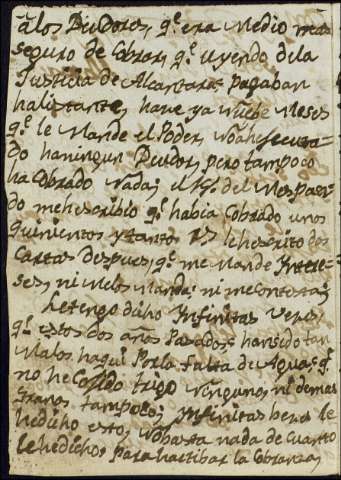 a los Deudores, q.e era Medio mas
seguro de Cobrar, q.e uyendo dela
Justicia de Alcantara, pagaban
halistante, haue ya Nuebe Meses
q.e le Mande el Poder, No ahe
do haningun Deudor, pero tampoco
ha Cobrado Nada; el 19 del Mes pasa-
do mehescribio q.e habia Cobrado unos
quinientos y tantos le hescrito dos
Cartas despues, q.e me Mande Intere-
ses, ni Melos Manda; ni meContexta;
Letengo dicho Infinitas Vezes
q.e estos dos años Pasados, hansido tan
Malos haqui Porla falta de Aguas, q.e
no heCojido trigo Ninguno, ni demas
Granos tampoco; Infinitas bezes le
hedicho esto, Nobasta nada de Cuanto
lehedicho, Para hactibar la Cobranza,